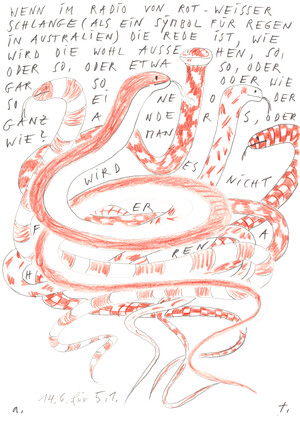 WENN IM RADIO VON ROT-WEISSER
SCHLANGE (ALS EIN SYMBOL FÜR REGEN
IN AUSTRALIEN) DIE REDE IST, WIE
WIRD DIE WOHL AUSSEHEN, SO,
ODER SO, ODER ETWA SO, ODER
GAR SO ODER WIE
SO EI NE ODER
GANZ ANDERS, ODER
WIE? MAN
WIRD ES NICHT
ER
FAH
REN
14.6. für 5.1.
a. t.